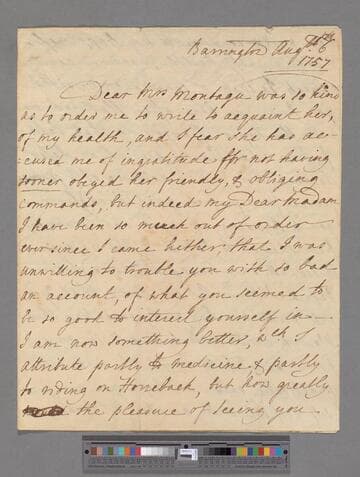 Barrington Augst. 6th
1757
Dear Mrs Montagu was so kind
as to order me to write to acquaint her,
of my health, and I fear she has ac-
cused me of ingratitude for not having
sooner obeyed her friendly, & obliging
commands, but indeed my Dear Madam
I have been so much out of order
ever since I came hither, that I was
unwilling to trouble you with so bad
an account, of what you seemed to
be so good to interest yourself in
I am now something better, wch I
attribute partly to medicine & partly
to riding on Horseback, but how greatly
the pleasure of seeing you